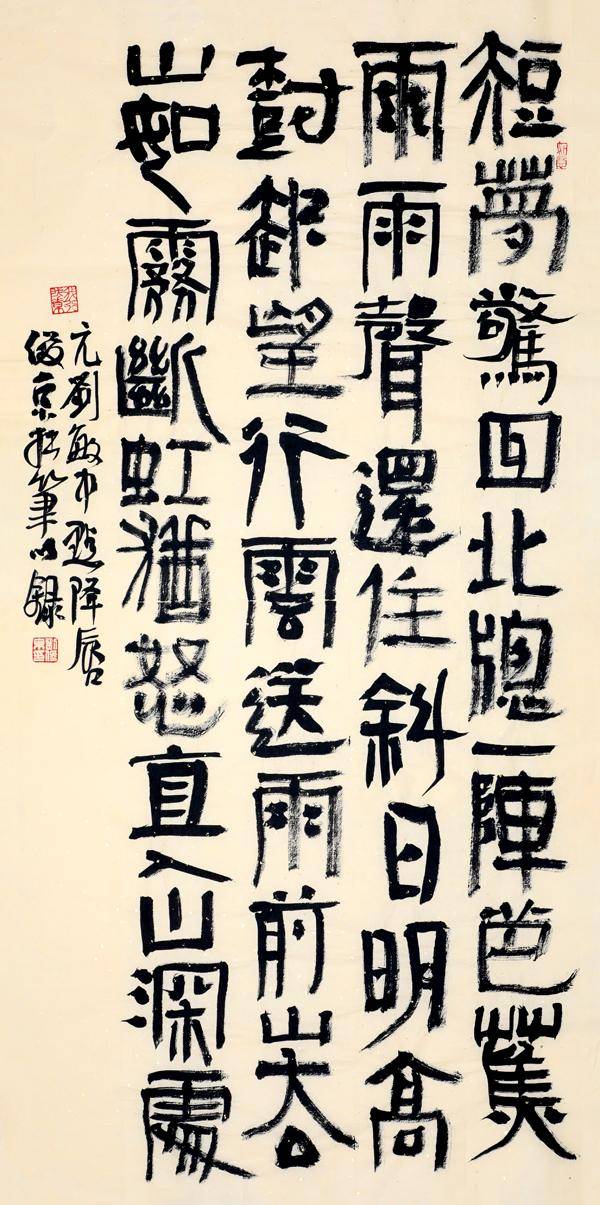 短夢驚回北牕一陣芭蕉
雨雨聲還住斜日明高
樹卻望行雲送雨前山去
山如霧斷虹猶怒直入山深處
元劉敏中點降唇
俊京拙筆以錄